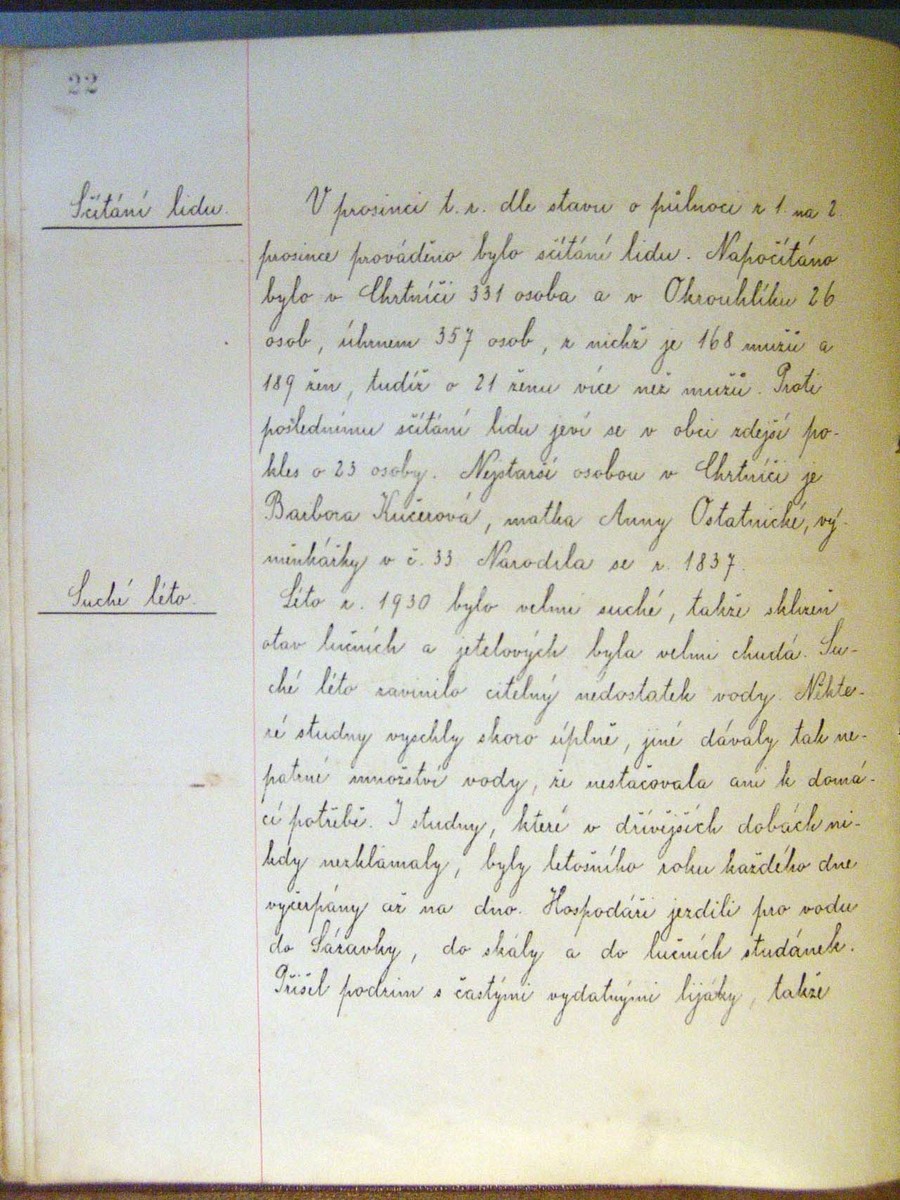 22
Sčítání lidu.
V prosinci t. r. dle stavu o půlnoci z 1. na 2.
prosince prováděno bylo sčítání lidu. Napočítáno
bylo v Chrtníči 331 osoba a v Okrouhlíku 26
osob, úhrnem 357 osob, z nichž je 168 mužů a
189 žen, tudíž o 21 ženu více než mužů. Proti
poslednímu sčítání lidu jeví se v obci zdejší po-
kles o 23 osoby. Nejstarší osobou v Chrtníči je
Barbora Kučerová, matka Anny Ostatnické, vý-
měnkářky v č. 33. Narodila se r. 1837.
Suché léto.
Léto r. 1930 bylo velmi suché, takže sklizeň
otav lučních a jetelových byla velmi chudá. Su-
ché léto zavinilo citelný nedostatek vody. Někte-
ré studny vyschly skoro úplně, jiné dávaly tak ne-
patrné množství vody, že nestačovala ani k domá-
cí potřebě. I studny, které v dřívějších dobách ni-
kdy nezklamaly, byly letošního roku každého dne
vyčerpány až na dno. Hospodáři jezdili pro vodu
do Sázavky, do skály a do lučních studánek.
Přišel podzim s častými vydatnými lijáky, takže